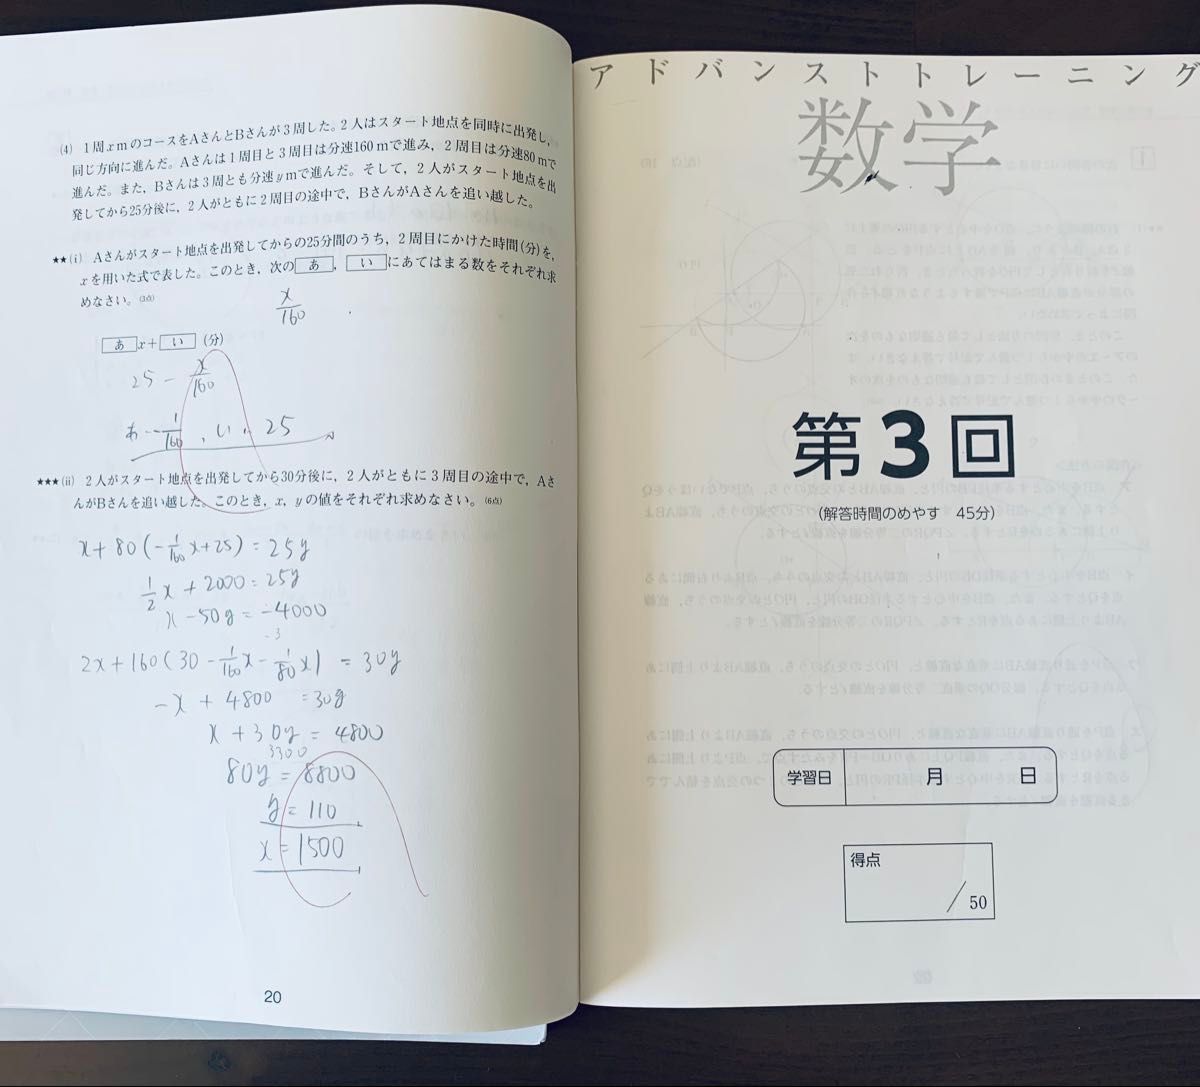 (4) 1周x mのコースをAさんとBさんが3周した。2人はスタート地点を同時に出発し，
同じ方向に進んだ。Aさんは1周目と3周目は分速160 mで進み，2周目は分速80 mで
進んだ。また，Bさんは3周とも分速y mで進んだ。そして，2人がスタート地点を出
発してから25分後に，2人がともに2周目の途中で，BさんがAさんを追い越した。
★★(i) Aさんがスタート地点を出発してからの25分間のうち，2周目にかけた時間(分)を，
xを用いた式で表した。このとき，次の あ ， い にあてはまる数をそれぞれ求
めなさい。(3点)
x/160
あ x+ い (分)
25 - x/160
あ -1/160 , い 25
★★★(ii) 2人がスタート地点を出発してから30分後に，2人がともに3周目の途中で，Aさ
んがBさんを追い越した。このとき，x，yの値をそれぞれ求めなさい。(6点)
x+80(-1/160x+25)=25y
1/2x+2000=25y
x-50y=-4000
-3
2x+160(30-1/160x-1/80x)=30y
-x+4800=30y
x+30y=4800
3300
80y=8800
y=110
x=1500
20
アドバンストトレーニング
数学
第3回
(解答時間のめやす 45分)
学習日 月 日
得点
/50